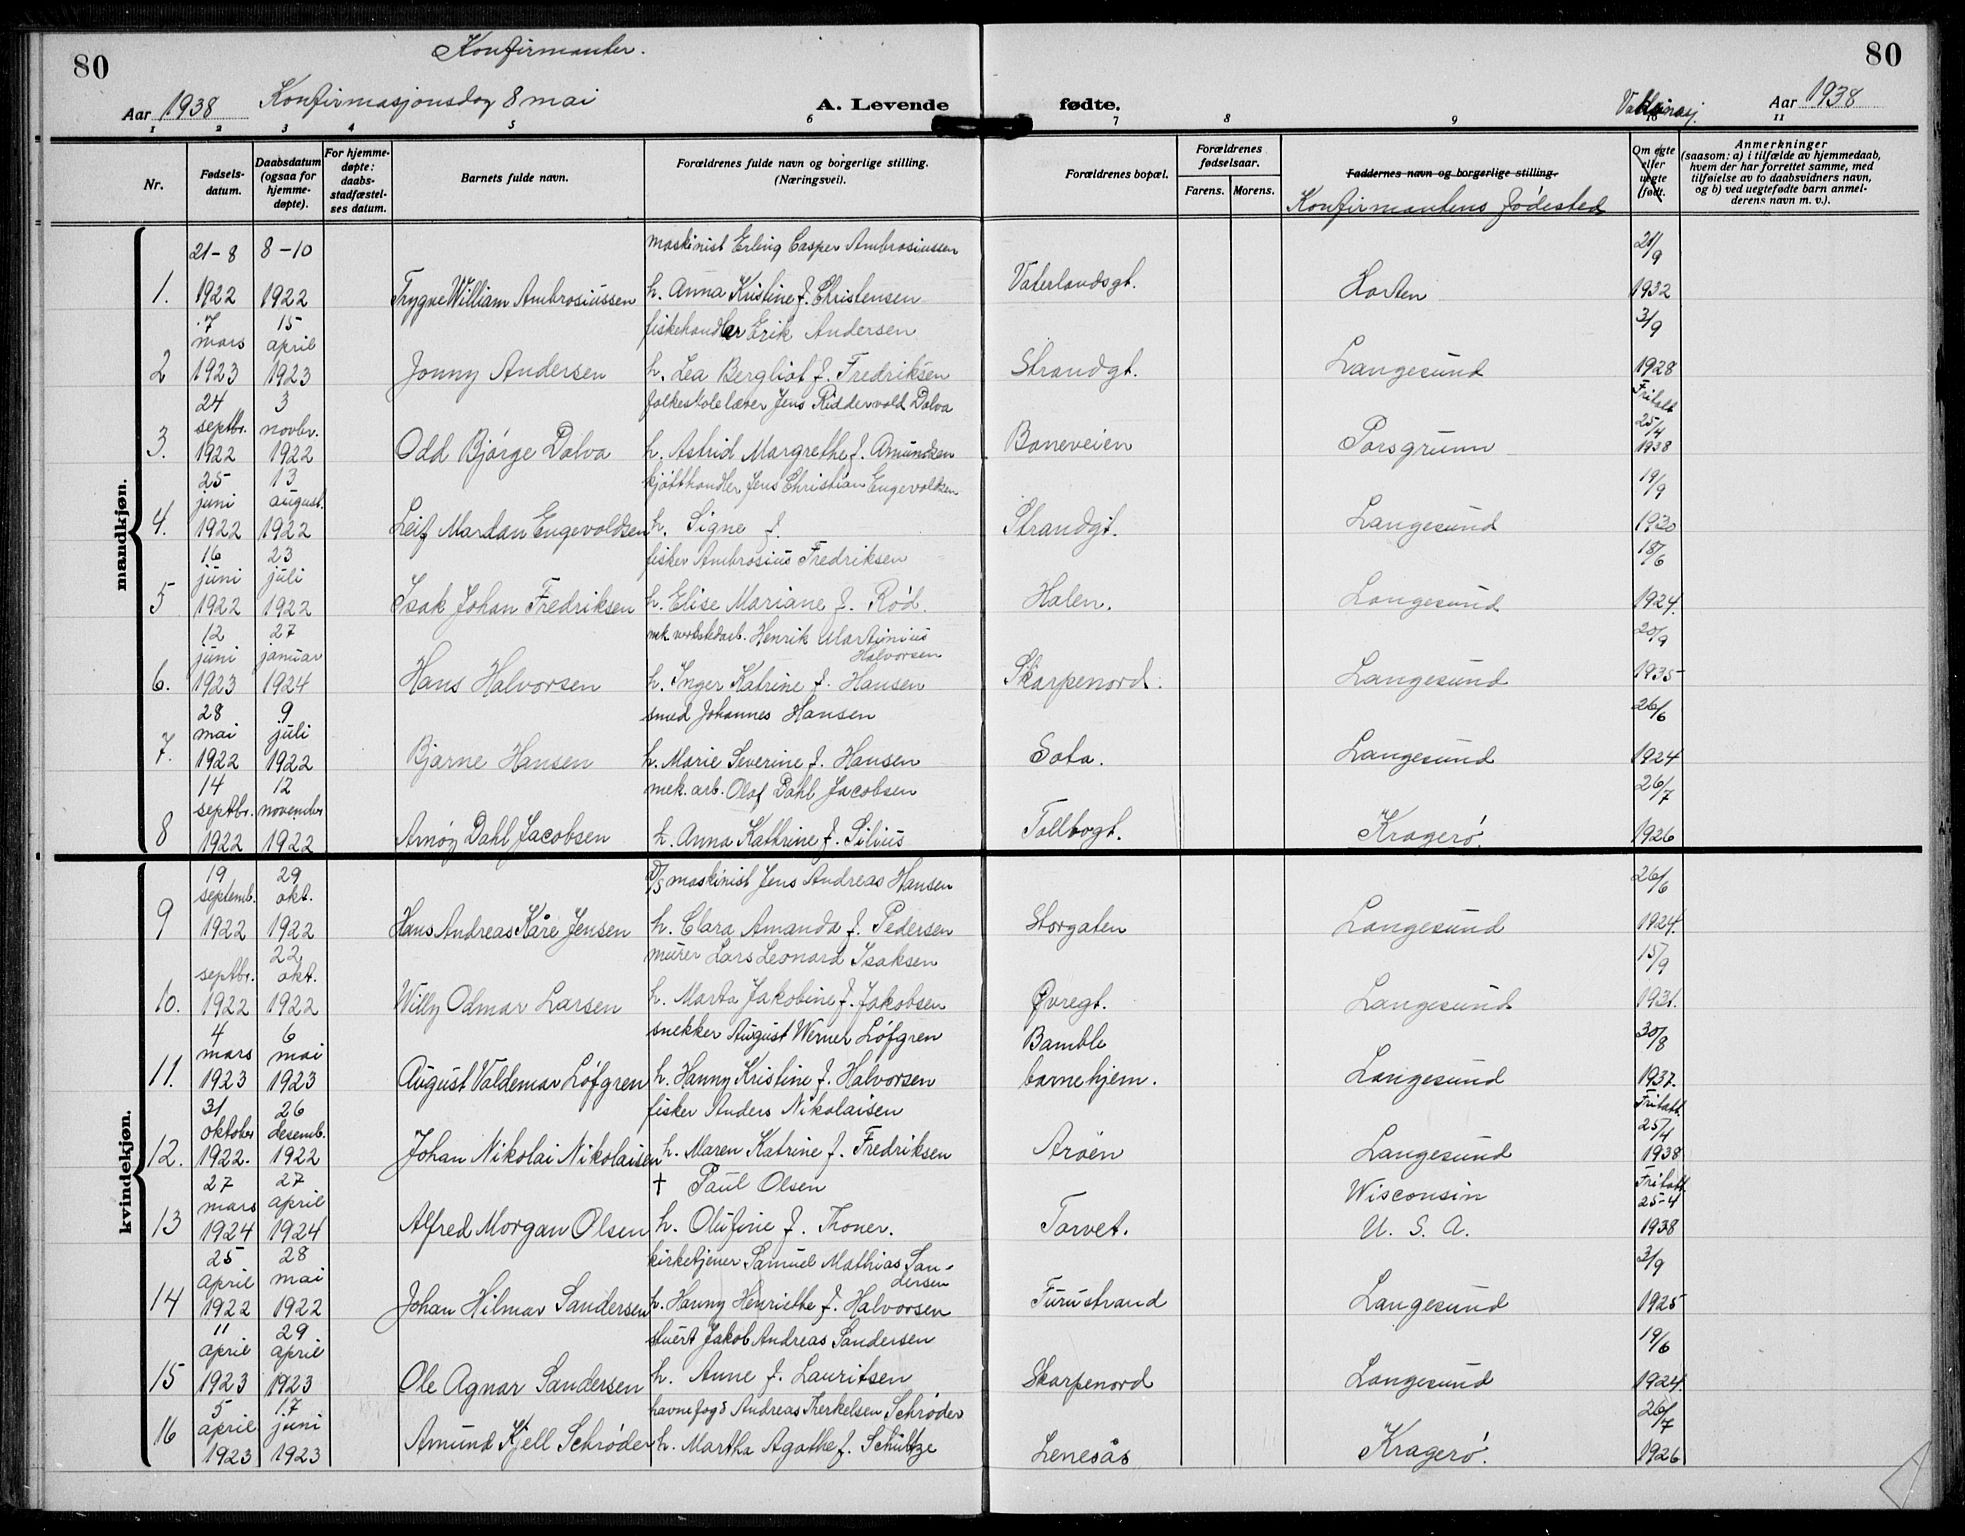 80
Konfirmanter.
80
Aar 1938
Konfirmasjonsdag 8 mai
A. Levende fødte.
Vaksinasj.
Aar 1938
1 2 3 4 5 6 7 8 9 10 11
Nr.
Fødsels-
datum.
Daabsdatum
(ogsaa for
hjemme-
døpte).
For hjemme-
døpte:
daabs-
stadfæstel-
ses datum.
Barnets fulde navn.
Forældrenes fulde navn og borgerlige stilling.
(Næringsvei).
Forældrenes bopæl.
Forældrenes
fødselsaar.
Farens. Morens.
Faddernes navn og borgerlige stilling.
Konfirmantens fødested
Om egte
eller
uegte
født.
Anmerkninger
(saasom: a) i tilfælde av hjemmedaab,
hvem der har forrettet samme, med
tilføielse av to daabsvidners navn,
og b) ved uegtefødte barn anmel-
derens navn m. v.).
mandkjøn.
21-8 8-10 maskinist Erling Casper Ambrosiussen 21/9
1. 1922 1922 Trygve William Ambrosiussen h. Anna Kristine f. Christensen Vaterlandsgt. Horten 1932
7 mars 15 april fiskehandler Erik Andersen 3/9
2 1923 1923 Jonny Andersen h. Lea Bergliot f. Fredriksen Strandgt. Langesund 1928
24 septbr. 3 novbr. folkeskolelærer Jens Riddervold Dalva Fritatt 25/4
3. 1922 1922 Odd Bjørge Dalva h. Astrid Margrethe f. Amundsen Baneveien Porsgrunn 1938
25 juni 13 august. kjøtthandler Jens Christian Engevoldsen 19/9
4. 1922 1922 Leif Mardan Engevoldsen h. Signe f. Strandgt. Langesund 1930
16 juni 23 juli fisker Ambrosius Fredriksen 18/6
5 1922 1922 Isak Johan Fredriksen h. Elise Mariane f. Rød. Halen. Langesund 1924.
12 juni 27 januar mek. verkstedarb. Henrik Martinius Halvorsen 20/9
6. 1923 1924 Hans Halvorsen h. Inger Katrine f. Hansen Skarpenord. Langesund 1935
28 mai 9 juli smed Johannes Hansen 26/6
7. 1922 1922 Bjarne Hansen h. Marie Severine f. Hansen Sota. Langesund 1924
14 septbr. 12 november mek. arb. Olaf Dahl Jacobsen 26/7
8 1922 1922 Arnøy Dahl Jacobsen h. Anna Kathrine f. Silius Tollbogt. Kragerø. 1926
kvindekjøn.
19 septemb. 29 okt. D/S maskinist Jens Andreas Hansen 26/6
9 1922 1922 Hans Andreas Kåre Jensen h. Clara Amanda f. Pedersen Storgaten Langesund 1924.
septbr. 22 okt. murer Lars Leonard Isaksen 15/9
10. 1922 1922 Willy Odmar Larsen h. Marta Jakobine f. Jakobsen Øvregt. Langesund 1931.
4 mars 6 mai snekker August Werner Løfgren Bamble 30/8
11. 1923 1923 August Valdemar Løfgren h. Hanny Kristine f. Halvorsen barnehjem. Langesund 1937.
31 oktober 26 desemb. fisker Anders Nikolaisen Fritatt. 25/4
12. 1922. 1922 Johan Nikolai Nikolaisen h. Maren Katrine f. Fredriksen Arøen Langesund 1938
27 mars 27 april † Paul Olsen Wisconsin Fritatt 25-4
13 1924 1924 Alfred Morgan Olsen h. Olufine f. Thoner. Torvet. U. S. A. 1938
25 april 28 mai kirketjener Samuel Mathias Sandersen 3/9
14 1922 1922 Johan Hilmar Sandersen h. Hanny Henriette f. Halvorsen Furustrand Langesund 1925
11 april 29 april stuert Jakob Andreas Sandersen 19/6
15 1923 1923 Ole Agnar Sandersen h. Anne f. Lauritsen Skarpenord Langesund 1924.
5 april 17 juni havnefogd Andreas Therkelsen Schrøder 26/7
16 1923 1923 Amund Kjell Schrøder h. Martha Agathe f. Schultze Lenesås Kragerø. 1926